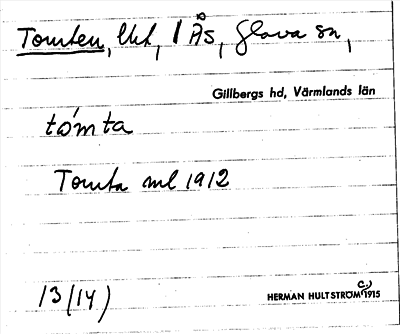 Tomten, lht, 1 Ås, Glava sn,
Gillbergs hd, Värmlands län
tómta
Tomta ml 1912
13(14)
HERMAN HULTSTRÖM C:) 1915